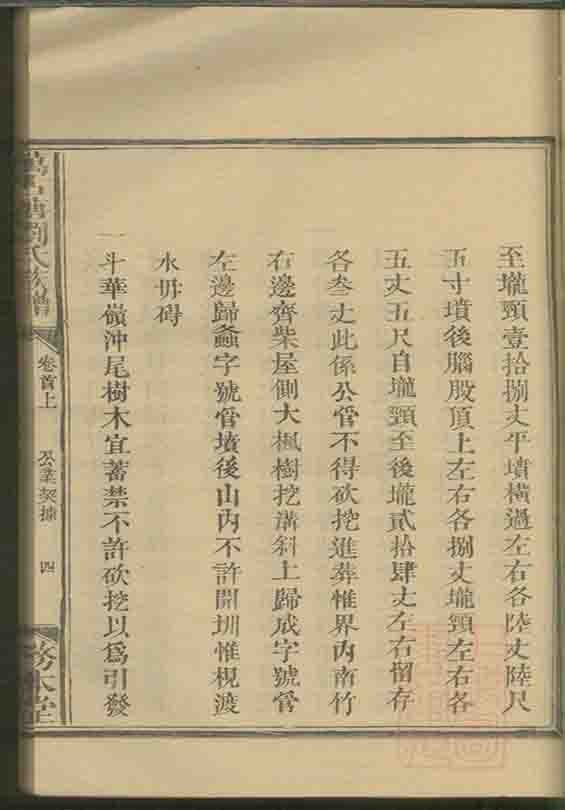 至壠頸壹拾捌丈平墳橫過左右各陸丈陸尺
五寸墳後腦股頂上左右各捌丈壠頸左右各
五丈五尺自壠頸至後壠貳拾肆丈左右留存
各叁丈此係公管不得砍挖進葬惟界内南竹
右邊齊柴屋側大楓樹挖溝斜上歸成字號管
左邊歸螽字號管墳後山内不許開圳惟梘渡
水毋碍
一斗華嶺沖尾樹木宜蓄禁不許砍挖以爲引發
劉氏族譜
卷首上
公業契據
四
務本堂